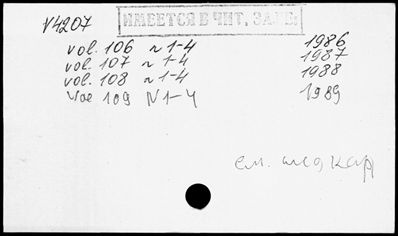 V4207
ИМЕЕТСЯ В ЧИТ. ЗАЛЕ
vol. 106 N 1-4 1986
vol. 107 N 1-4 1987
vol. 108 N 1-4 1988
vol 109 N 1-4 1989
см. след кар